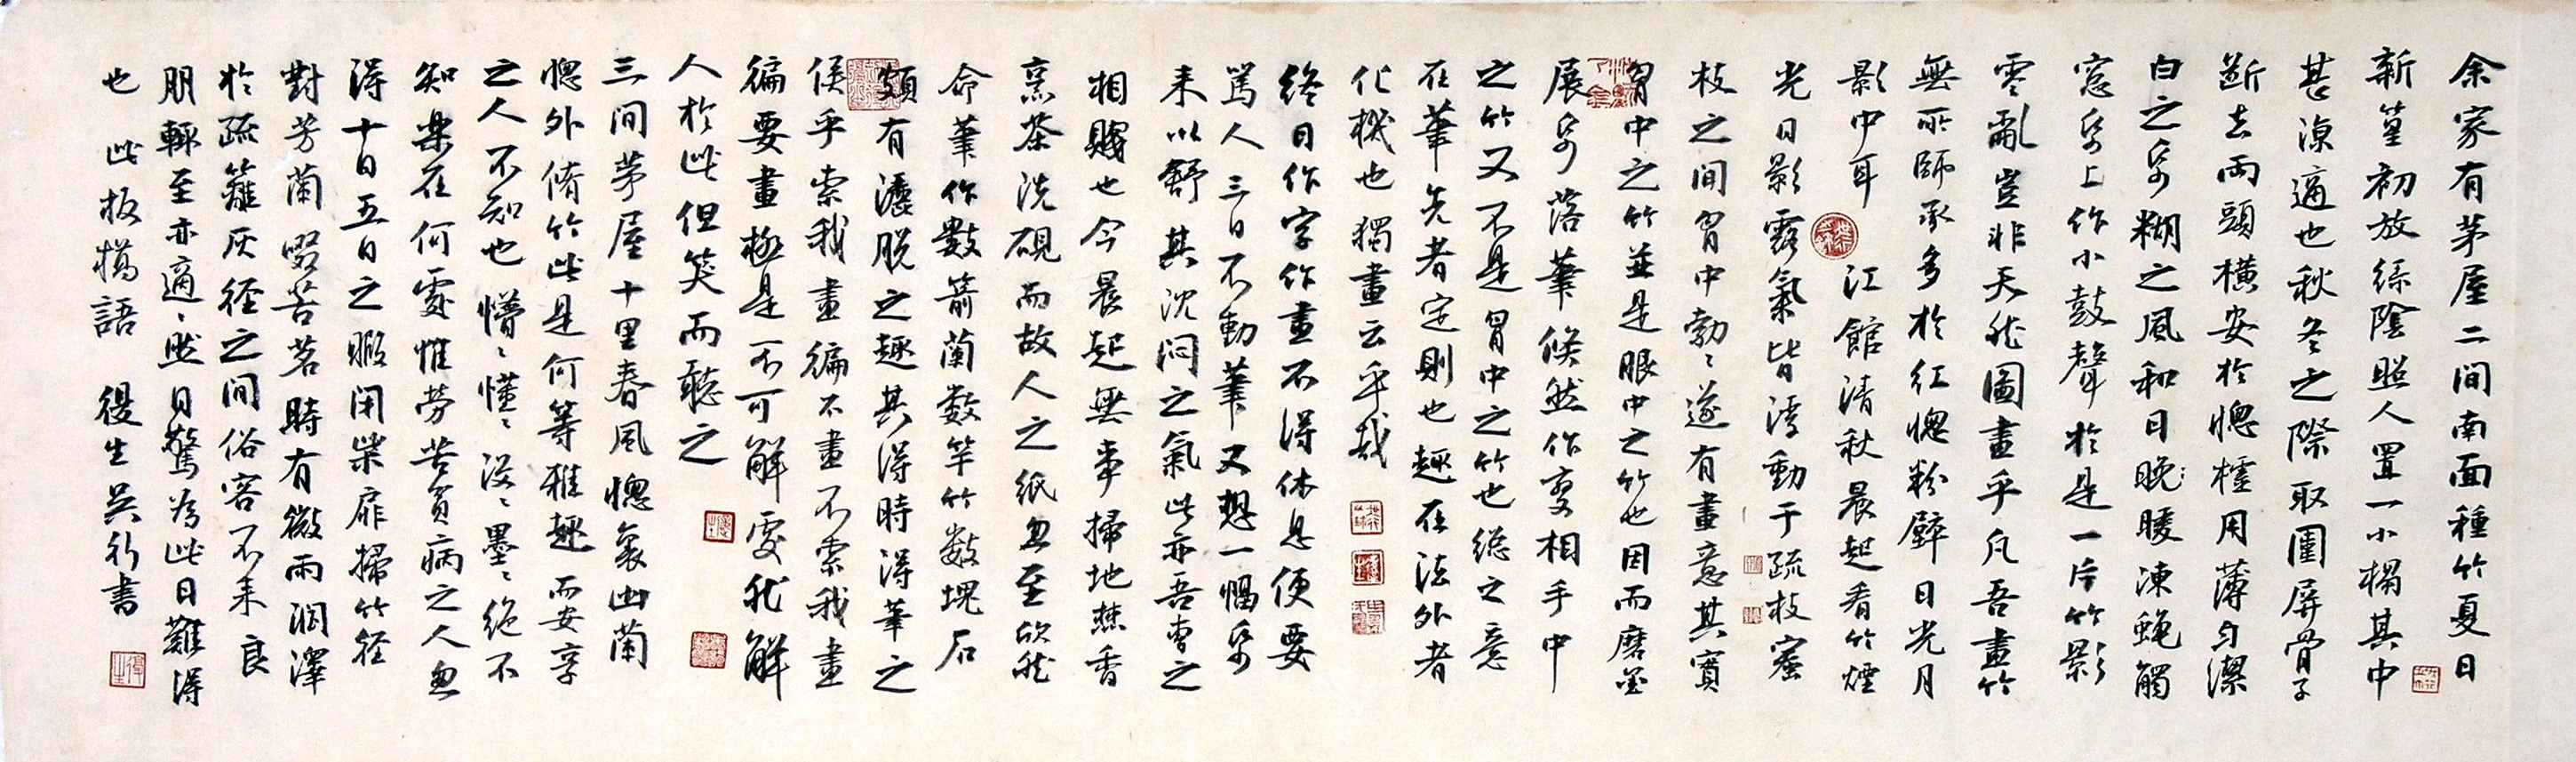 余家有茅屋二間南面種竹夏日
新篁初放綠陰照人置一小榻其中
甚涼適也秋冬之際取圍屏骨子
斷去兩頭橫安於窻櫺用薄勻潔
白之紙糊之風和日暖凍蠅觸
窓紙上作小鼓聲於是一片竹影
零亂豈非天然圖畫乎凡吾畫竹
無所師承多於紅窻粉壁日光月
影中耳 江館清秋晨起看竹煙
光日影露氣皆浮動于疏枝密
枝之間胷中勃〻遂有畫意其實
胷中之竹並是眼中之竹也因而磨墨
展紙落筆倏然作變相手中
之竹又不是胷中之竹也總之意
在筆先者定則也趣在法外者
化機也獨畫云乎哉
終日作字作畫不得休息便要
罵人三日不動筆又想一幅紙
來以舒其沈悶之氣此亦吾曹之
相賤也今晨起無事掃地焚香
烹茶洗硯而故人之紙忽至欣然
命筆作數箭蘭數竿竹數塊石
頗有灑脫之趣其得時得筆之
候乎索我畫徧不畫不索我畫
徧要畫極是不可解處然解
人於此但笑而聽之
三間茅屋十里春風窻裏幽蘭
窻外脩竹此是何等雅趣而安享
之人不知也懵〻懂〻沒〻墨〻絕不
知樂在何處惟勞苦貧病之人忽
得十日五日之暇閉柴扉掃竹徑
對芳蘭啜苦茗時有微雨潤澤
於疏籬仄徑之間俗客不來良
朋輒至亦適〻然自驚為此日難得
也 此板橋語 復生吳行書